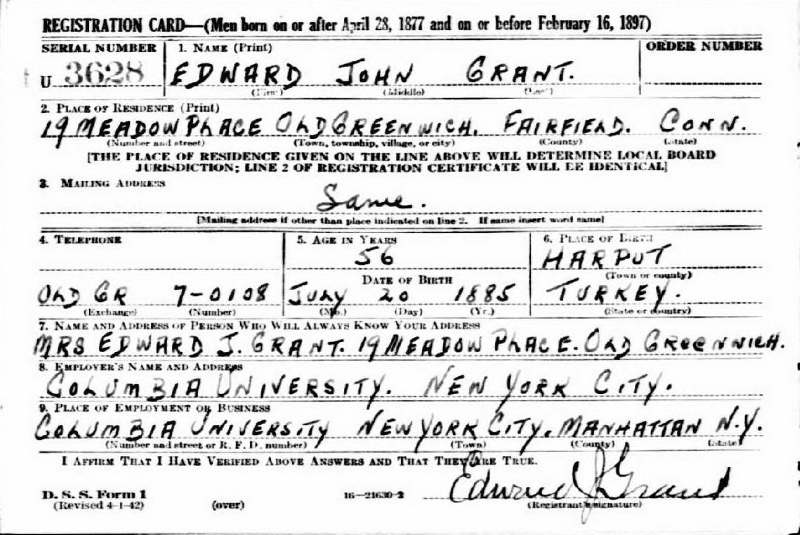 REGISTRATION CARD—(Men born on or after April 28, 1877 and on or before February 16, 1897)
SERIAL NUMBER 1. NAME (Print) ORDER NUMBER
U 3628 EDWARD JOHN GRANT.
(First) (Middle) (Last)
2. PLACE OF RESIDENCE (Print)
19 MEADOW PLACE OLD GREENWICH. FAIRFIELD. CONN.
(Number and street) (Town, township, village, or city) (County) (State)
[THE PLACE OF RESIDENCE GIVEN ON THE LINE ABOVE WILL DETERMINE LOCAL BOARD
JURISDICTION; LINE 2 OF REGISTRATION CERTIFICATE WILL BE IDENTICAL]
3. MAILING ADDRESS
Same.
[Mailing address if other than place indicated on line 2. If same insert word same]
4. TELEPHONE 5. AGE IN YEARS 6. PLACE OF BIRTH
56 HARPUT
DATE OF BIRTH (Town or county)
OLD GR 7-0108 JULY 20 1885 TURKEY.
(Exchange) (Number) (Mo.) (Day) (Yr.) (State or country)
7. NAME AND ADDRESS OF PERSON WHO WILL ALWAYS KNOW YOUR ADDRESS
MRS EDWARD J. GRANT. 19 MEADOW PLACE. OLD GREENWICH.
8. EMPLOYER'S NAME AND ADDRESS
COLUMBIA UNIVERSITY. NEW YORK CITY.
9. PLACE OF EMPLOYMENT OR BUSINESS
COLUMBIA UNIVERSITY NEW YORK CITY. MANHATTAN N.Y.
(Number and street or R. F. D. number) (Town) (County) (State)
I AFFIRM THAT I HAVE VERIFIED ABOVE ANSWERS AND THAT THEY ARE TRUE.
D. S. S. Form 1 16—21630-2 Edward J Grant
(Revised 4-1-42) (over) (Registrant's signature)